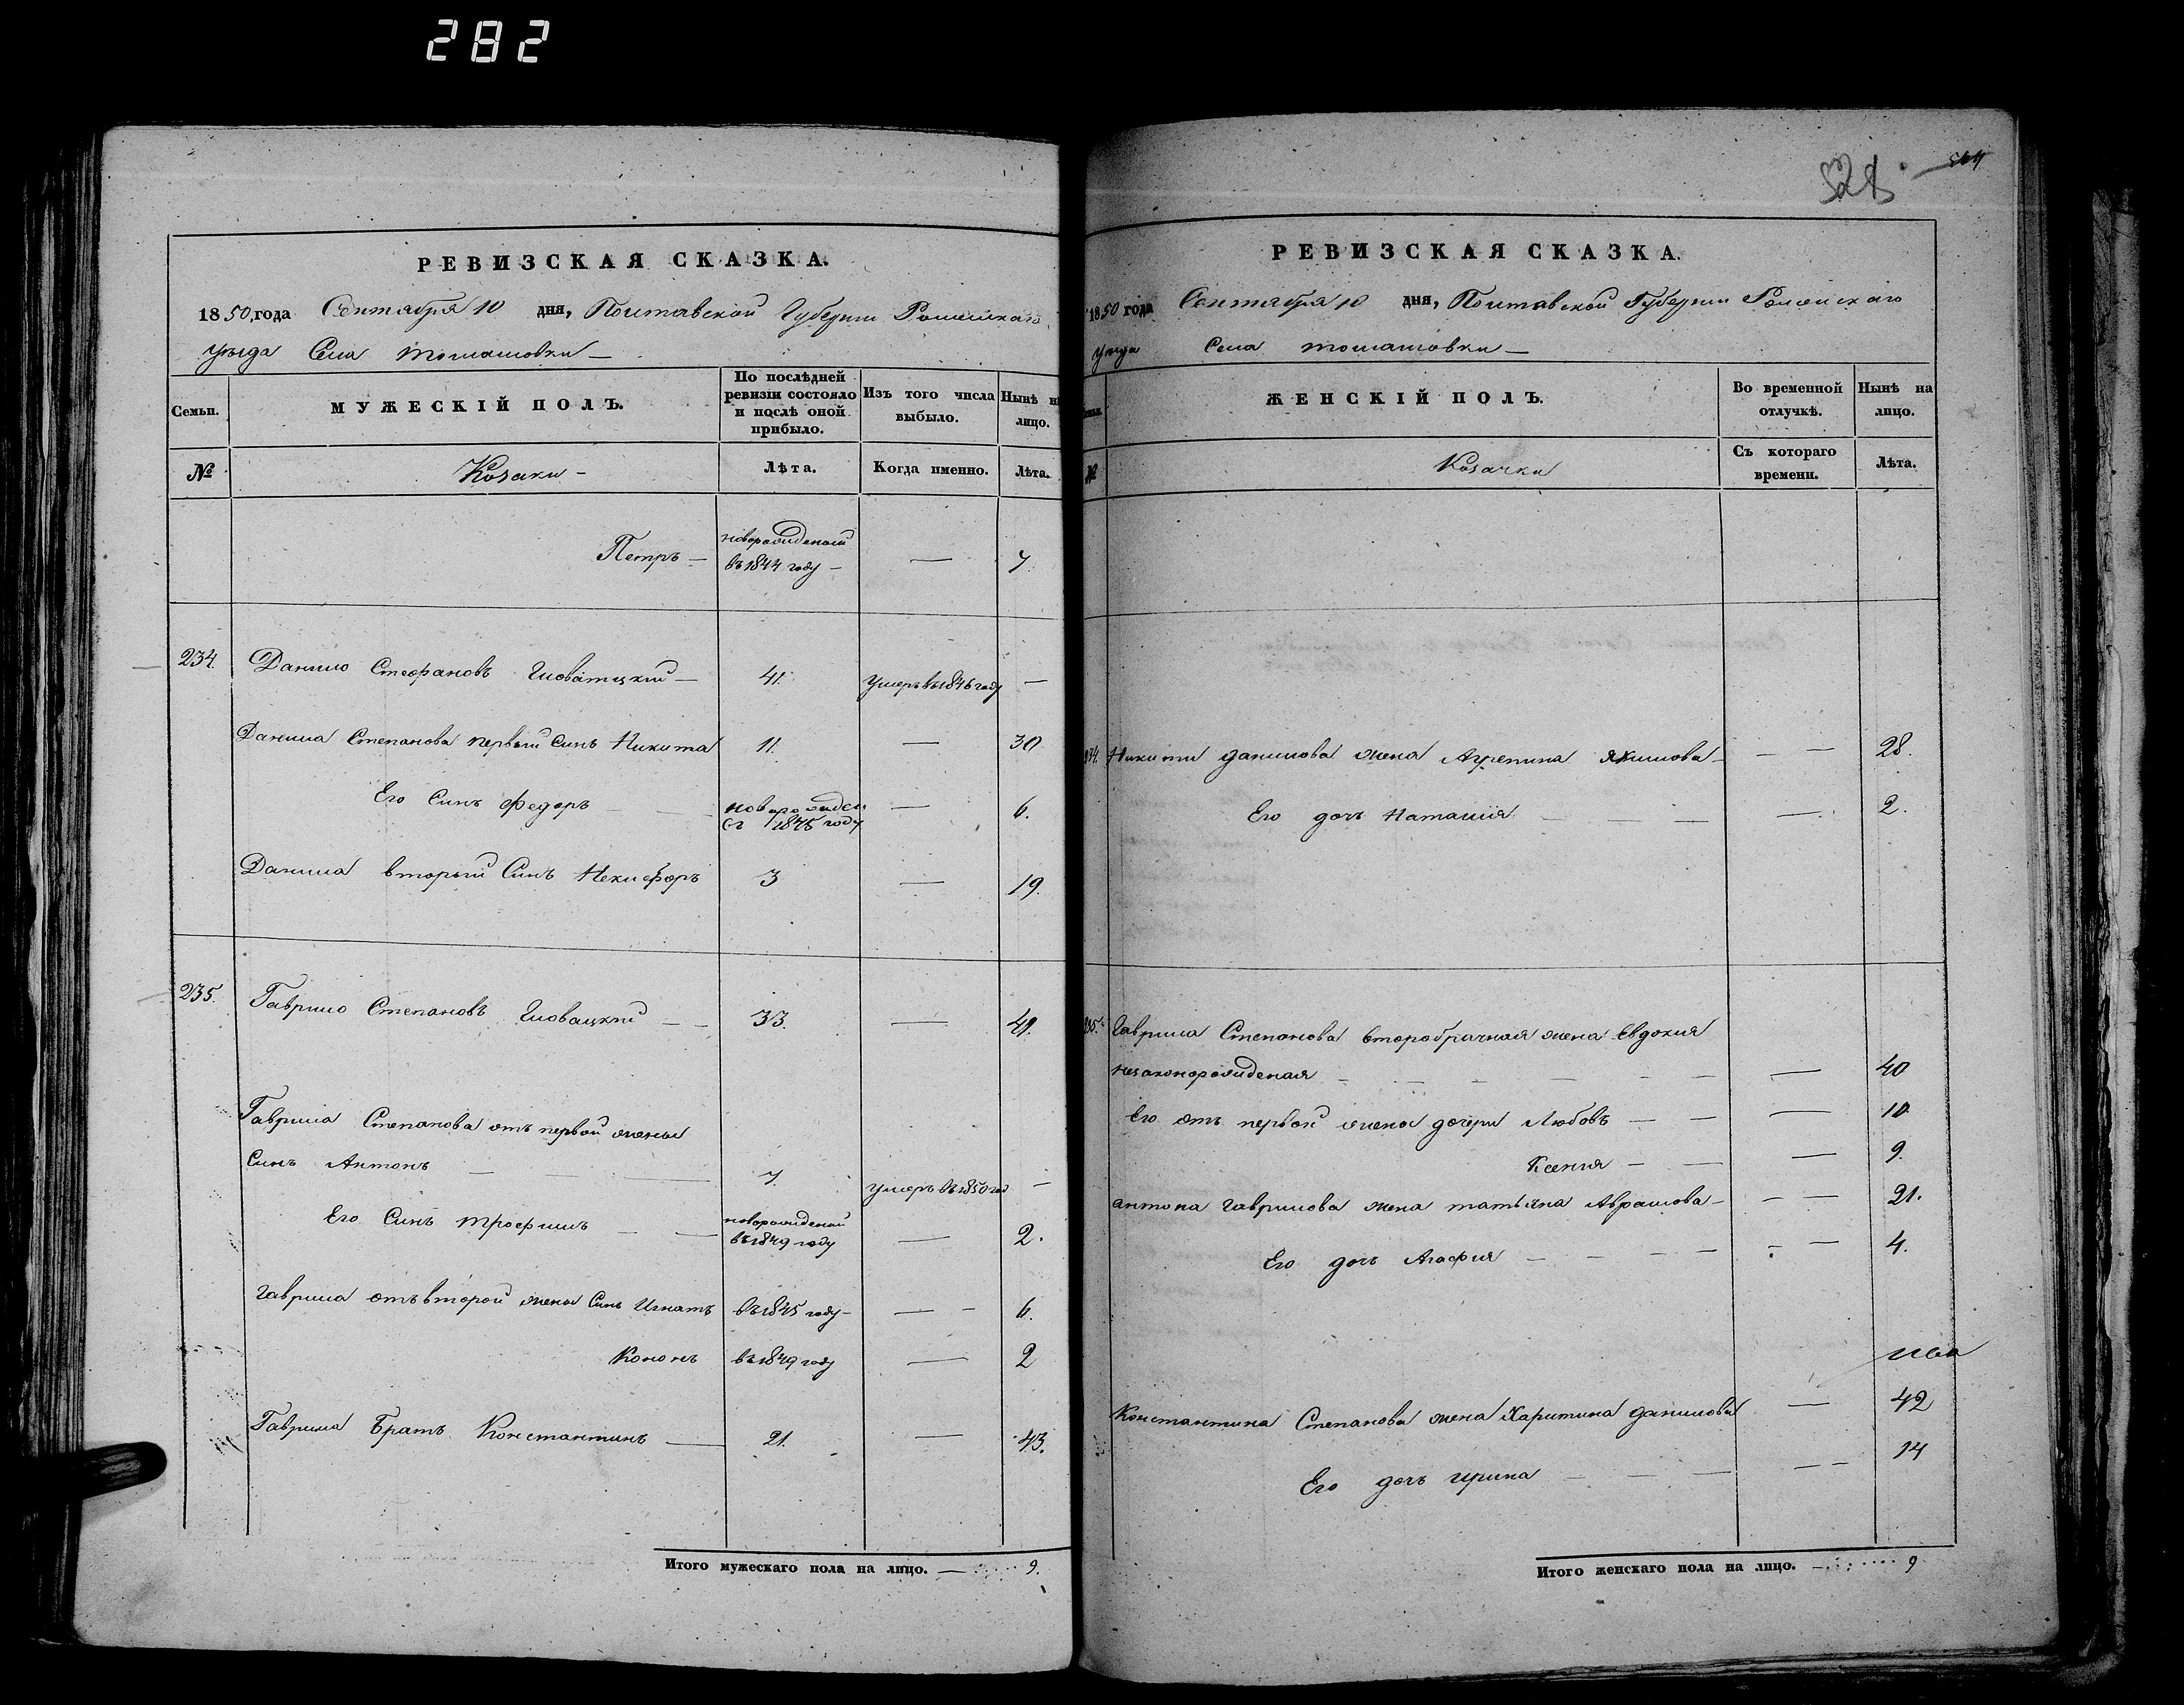 282
РЕВИЗСКАЯ СКАЗКА.
1850 года Сентября 10 дня, Полтавской Губернии Роменскаго
уезда Села Толмашовки —
Семьи.
МУЖЕСКІЙ ПОЛЪ.
По послѣдней ревизіи состояло и послѣ оной прибыло.
Изъ того числа выбыло.
Нынѣ на лицо.
№
Козаки —
Лѣта.
Когда именно.
Лѣта.
Петръ — новорожденой въ 1844 году — — 7
234. Данило Стефановъ Гловатцкий — 41. умеръ въ 1846 году —
Данила Степанова первый Синъ Никита 11. — 30
Его Синъ Федоръ новорожден 1845 году — 6.
Данила вторый Синъ Некифоръ 3 — 19.
235. Гаврило Степановъ Гловацкий — 33. — 49.
Гаврила Степанова отъ первой жены
Синъ Антонъ — 7. умеръ въ 1850 год —
Его Синъ Трофимъ — новорожденой въ 1849 году — 2.
Гаврила отъ второй жены Синъ Игнатъ въ 1845 году — — 6.
Кононъ въ 1849 году — 2
Гаврила Братъ Константинъ — 21. — 43.
Итого мужескаго пола на лицо. — 9.
528
РЕВИЗСКАЯ СКАЗКА.
1850 года Сентября 10 дня, Полтавской Губернии Роменскаго
уезда Села Толмашовки —
ЖЕНСКІЙ ПОЛЪ.
Во временной отлучкѣ.
Нынѣ на лицо.
№
Козачки
Съ котораго времени.
Лѣта.
234. Никити Данилова жена Агрепина Якимова — — 28.
Его дочъ Наталия — — 2.
235. Гаврила Степанова второбрачная жена Евдокия
незаконорожденая — — 40
Его отъ первой жены дочери Любовъ — — 10
Ксения — — 9.
Антона Гаврилова жена Татьяна Абрамова — — 21.
Его дочъ Агафия — — 4.
Константина Степанова жена Харитина Данилова — 42
Его дочъ Ирина — — 14
Итого женскаго пола на лицо. — 9